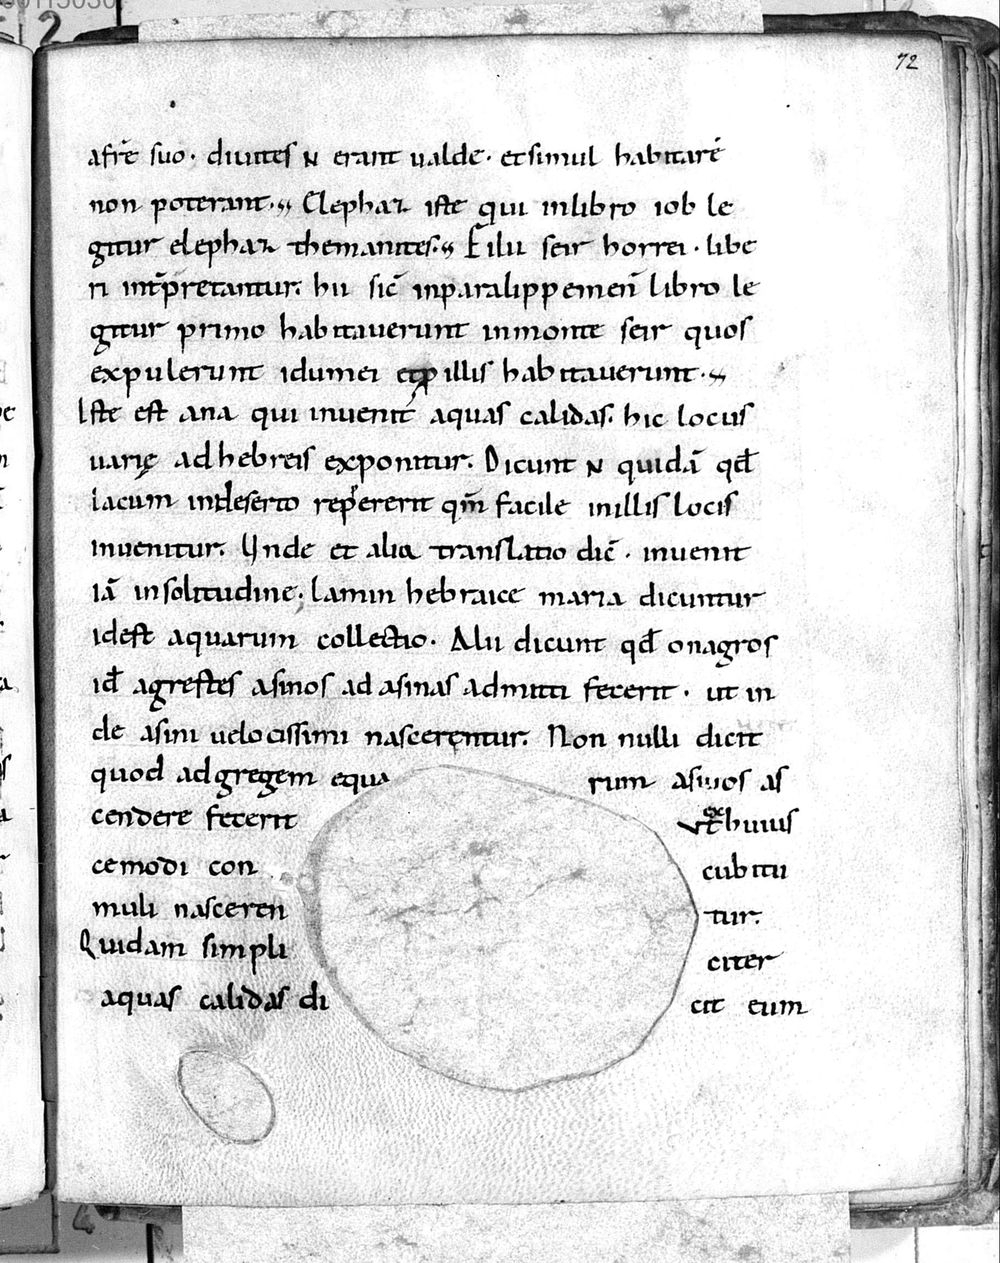 72
afrē suo. diuites ɴ erant ualde. et simul habitarē
non poterant. Eliphaz iste qui in libro iob le
gitur eliphaz themanites. Filii seir horrei. libe
ri int̄pretantur. hii sic̄ inparalippemen̄ libro le
gitur primo habitauerunt inmonte seir quos
expulerunt idumei et ꝓ illis habitauerunt.
Iste est ana qui inuenit aquas calidas. hic locus
uarię ad hebreis exponitur. Dicunt ɴ quidā qđ
lacum indeserto repererit qm̄ facile inillis locis
inuenitur. Unde et alia translatio dic̄. inuenit
iā insolitudine. lamin hebraice maria dicuntur
idest aquarum collectio. Alii dicunt qđ onagros
iđ agrestes asinos ad asinas admitti fecerit. ut in
de asini uelocissimi nascerentur. Non nulli dicit
quod ad gregem equa rum asinos as
cendere fecerit ut ex huius
cemodi con cubitu
muli nasceren tur.
Quidam simpli citer
aquas calidas di cit eum